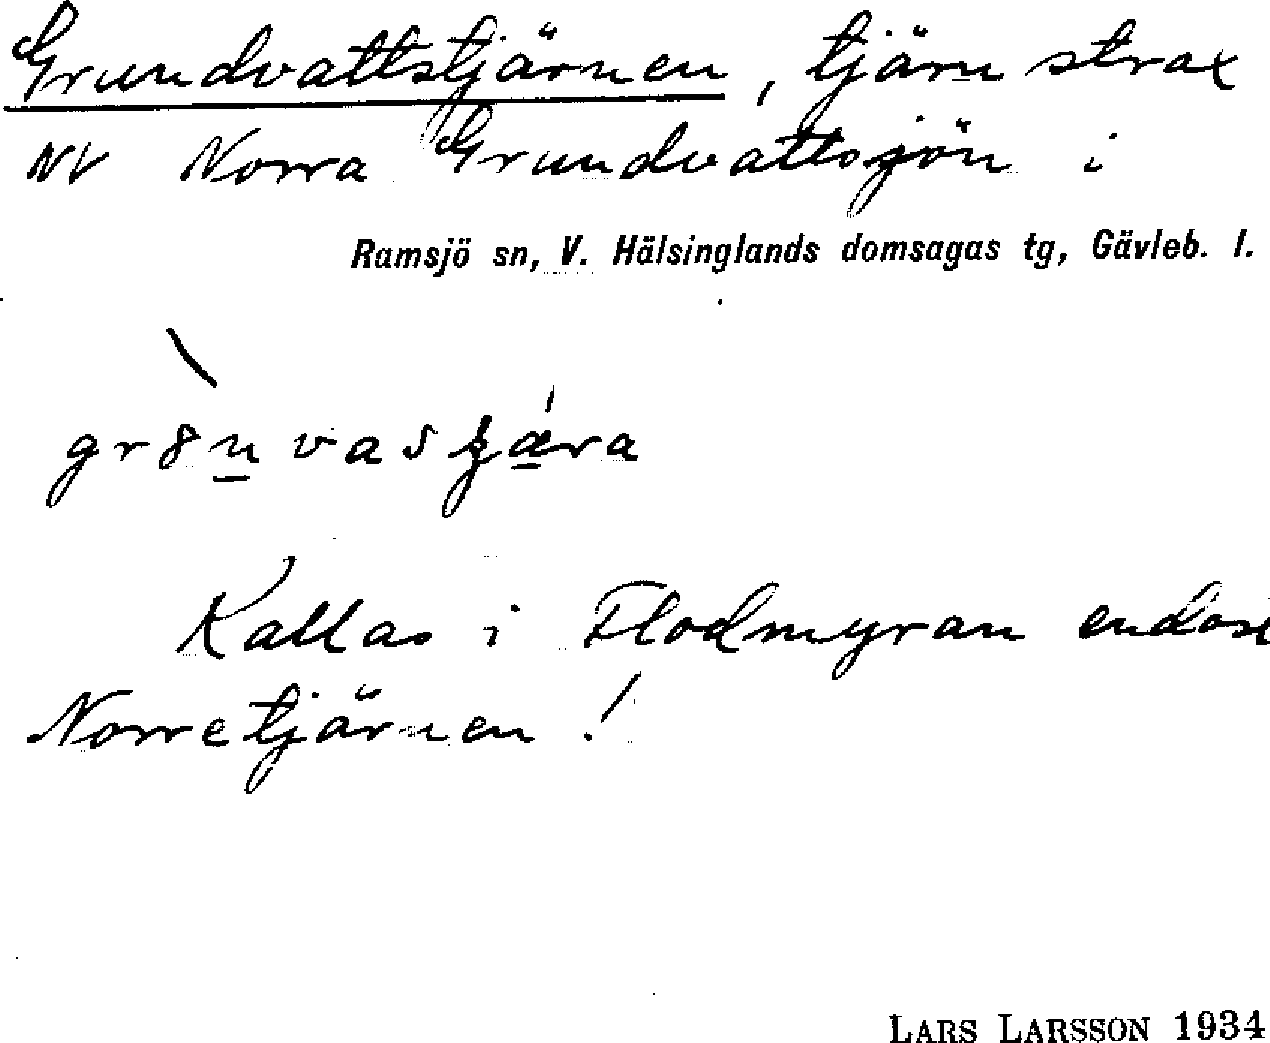 Grundvattstjärnen, tjärn strax
NV Norra Grundvattsjön i
Ramsjö sn, V. Hälsinglands domsagas tg, Gävleb. l.
Kallas i Flodmyran endast
Norretjärnen!
LARS LARSSON 1934